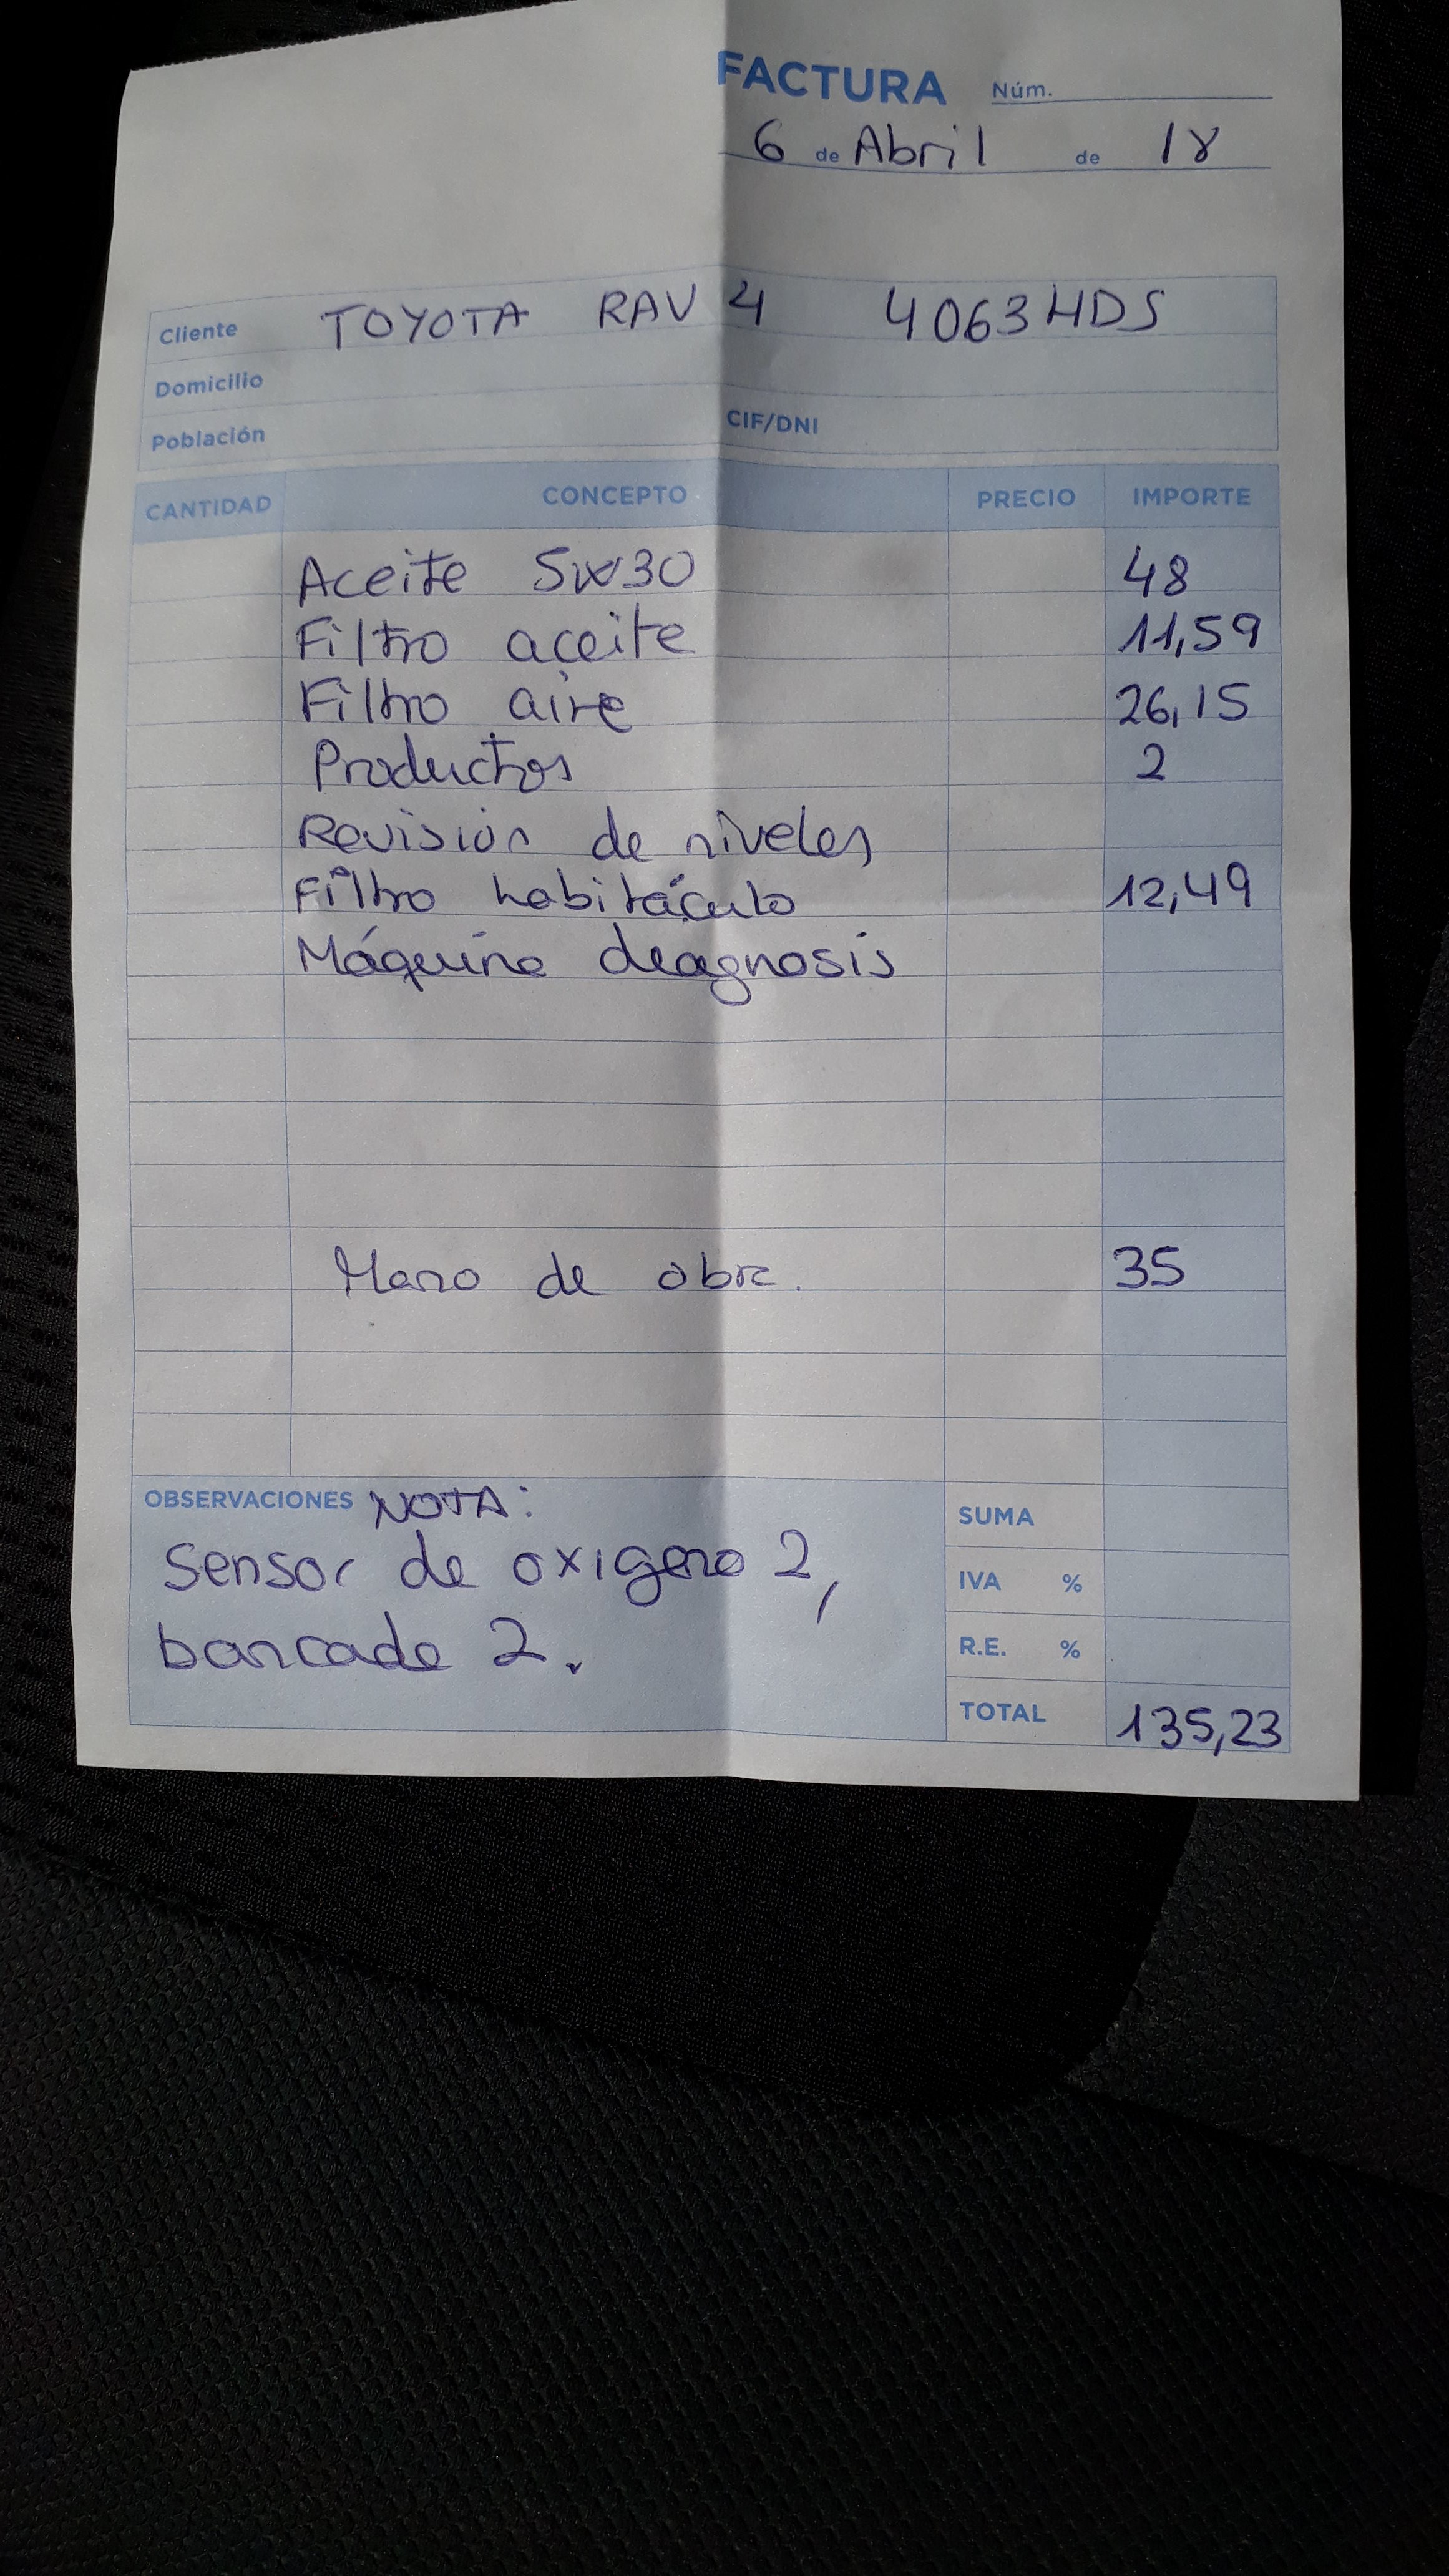 FACTURA Núm.
6 de Abril de 18
Cliente TOYOTA RAV 4 4063HDS
Domicilio
Población CIF/DNI
CANTIDAD CONCEPTO PRECIO IMPORTE
Aceite 5W30 48
Filtro aceite 11,59
Filtro aire 26,15
Productos 2
Revisión de niveles
Filtro habitáculo 12,49
Máquina diagnosis
Mano de obra. 35
OBSERVACIONES NOTA:
Sensor de oxigeno 2,
bancada 2.
SUMA
IVA %
R.E. %
TOTAL 135,23